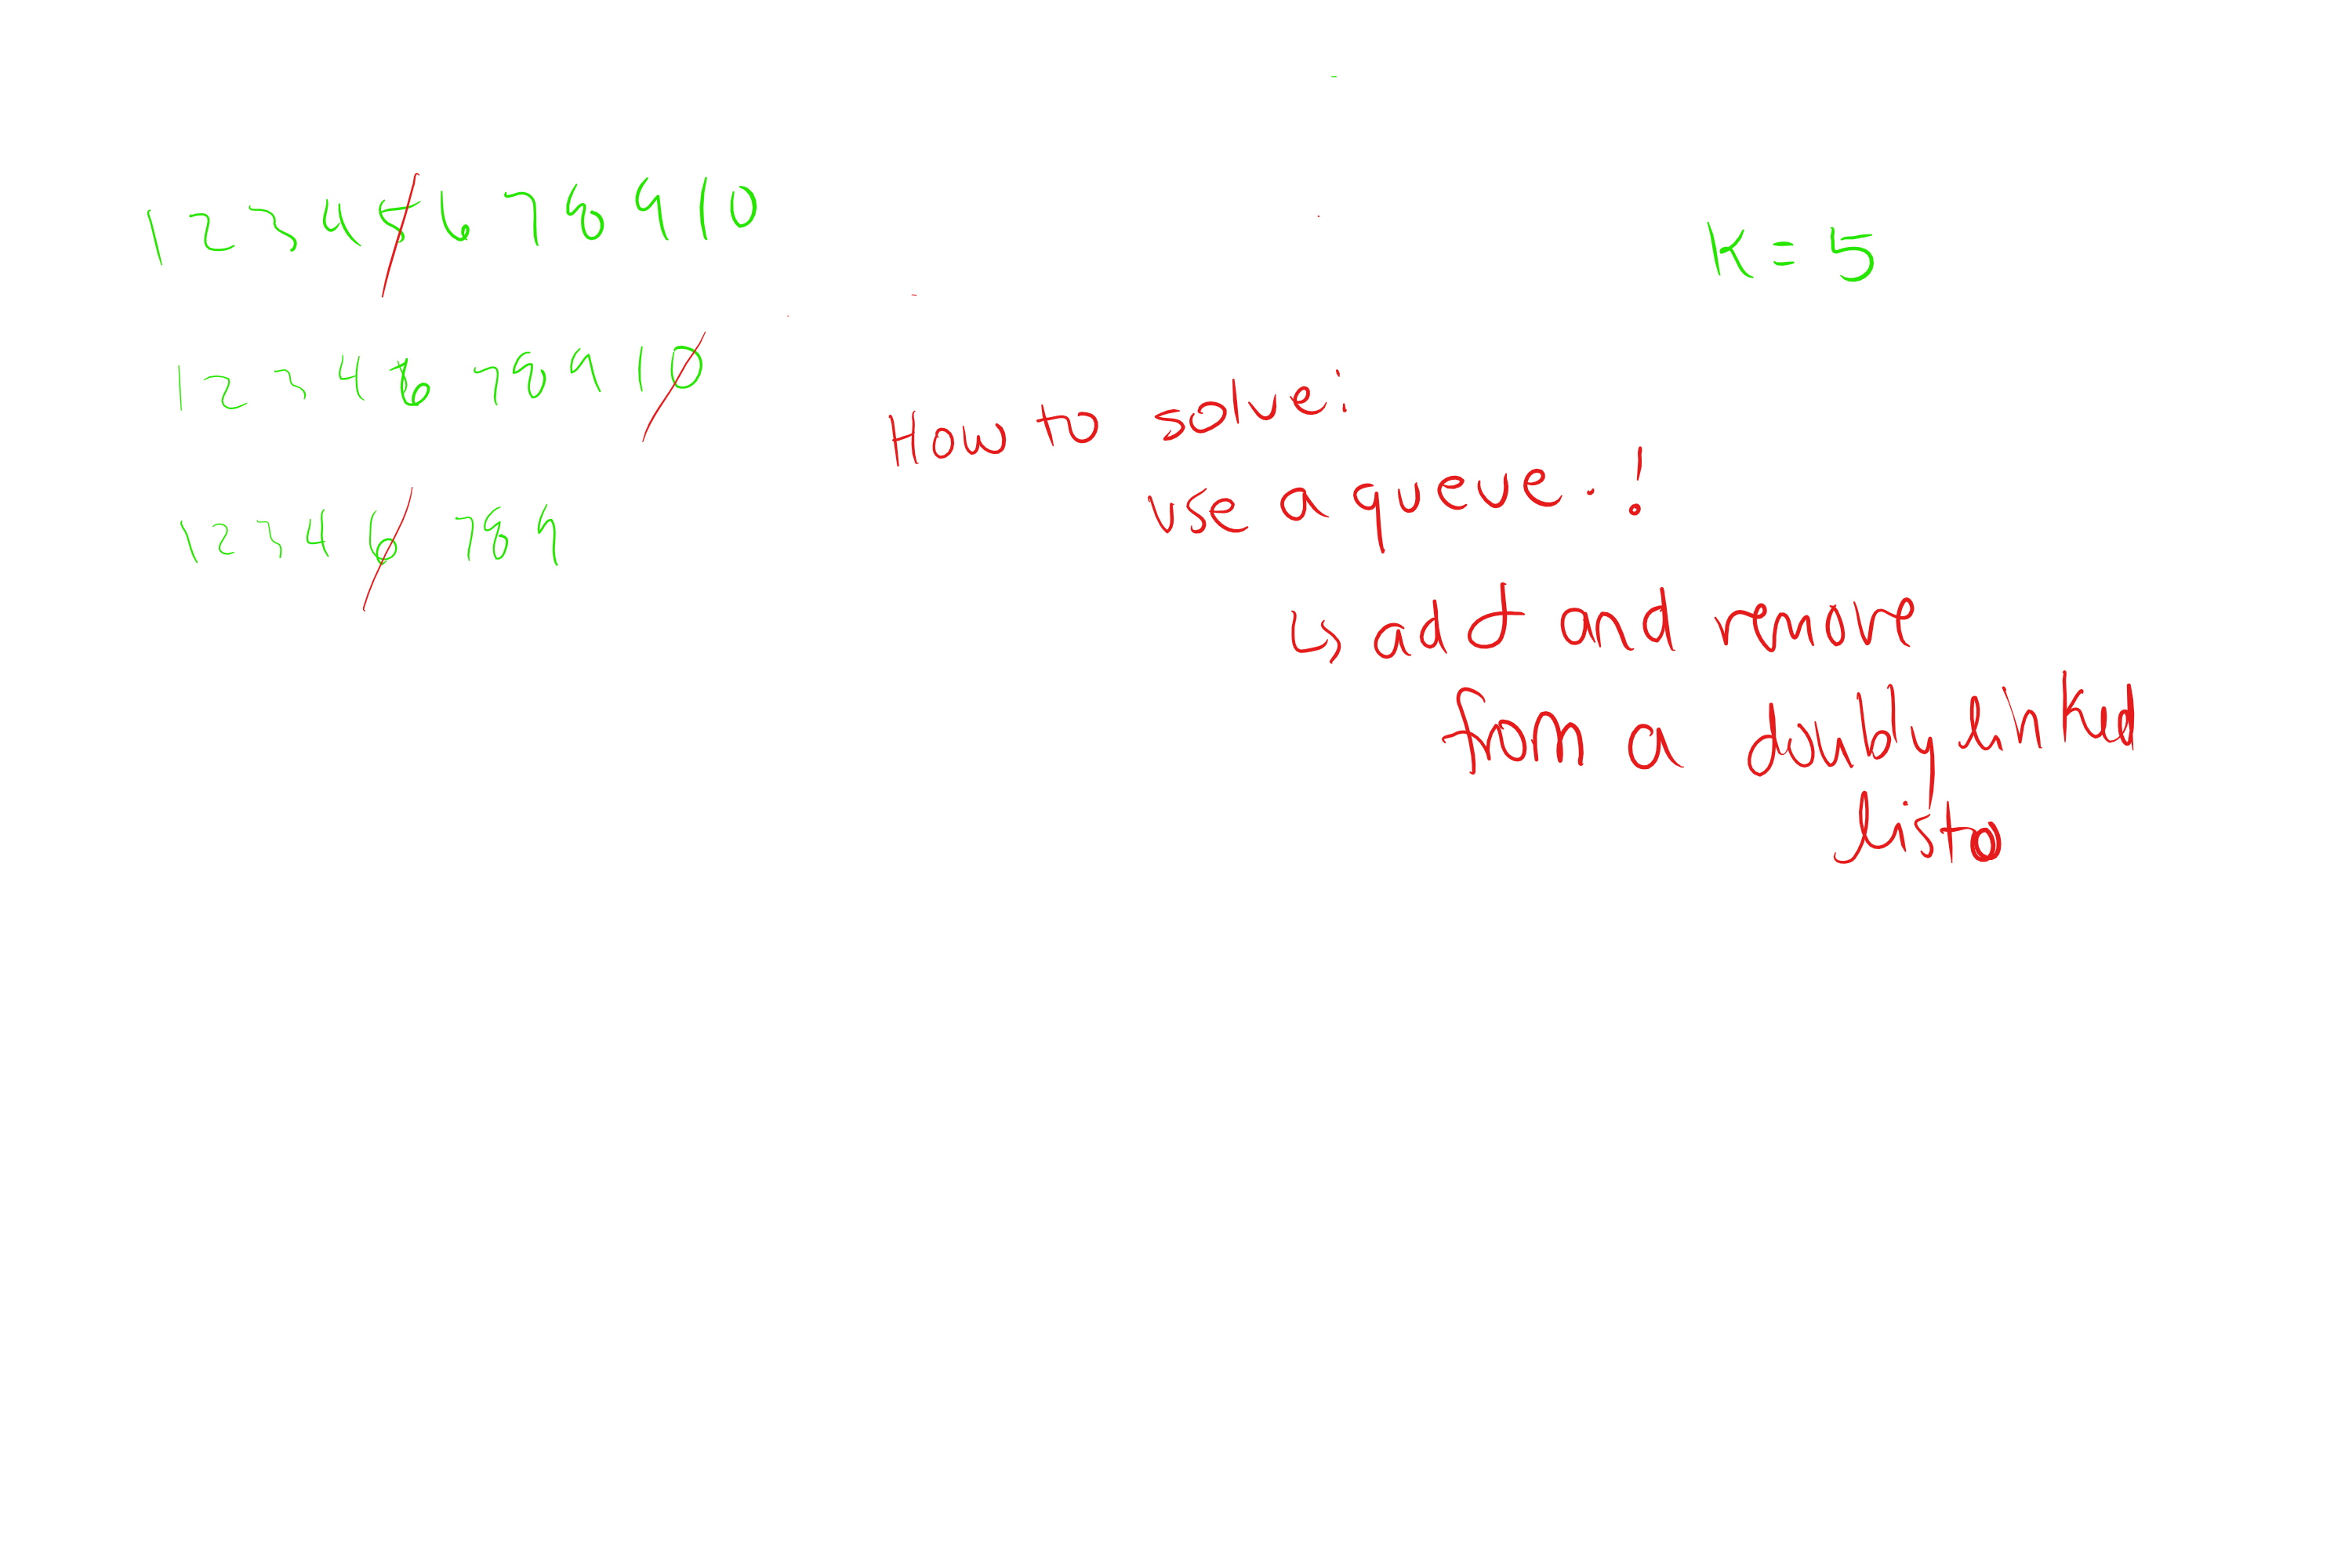 1 2 3 4 5 6 7 8 9 10
K = 5
1 2 3 4 6 7 8 9 10
How to solve:
use a queue. !
↳ add and remove
from a doubly linked
list
1 2 3 4 6 7 8 9